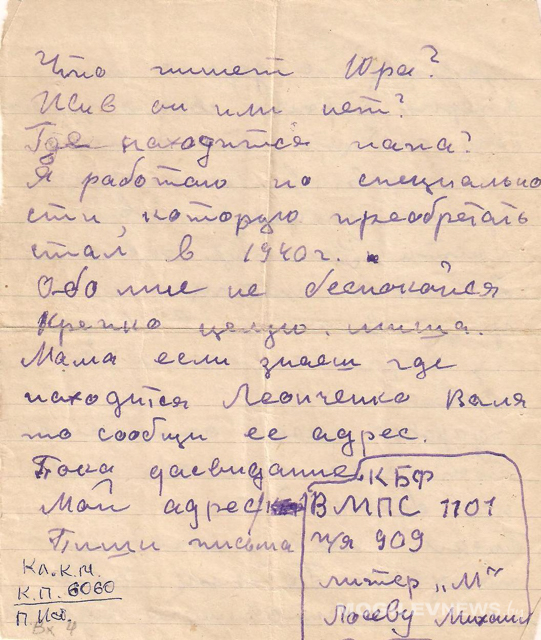 Что пишет Юра?
Жив он или нет?
Где находится папа?
Я работаю по специально
сти, которую преобретать
стал в 1940г.
Обо мне не беспокойся
Крепко целую. Миша.
Мама если знаеш где
находится Леонченко Валя
то сообщи ее адрес.
Пока дасвидание
Мой адрес
Пиши письма
КБФ
ВМПС 1101
п/я 909
литер „М"
Лосеву Михаил
Кл. К.М.
К.П. 6060
П.
Вх 4